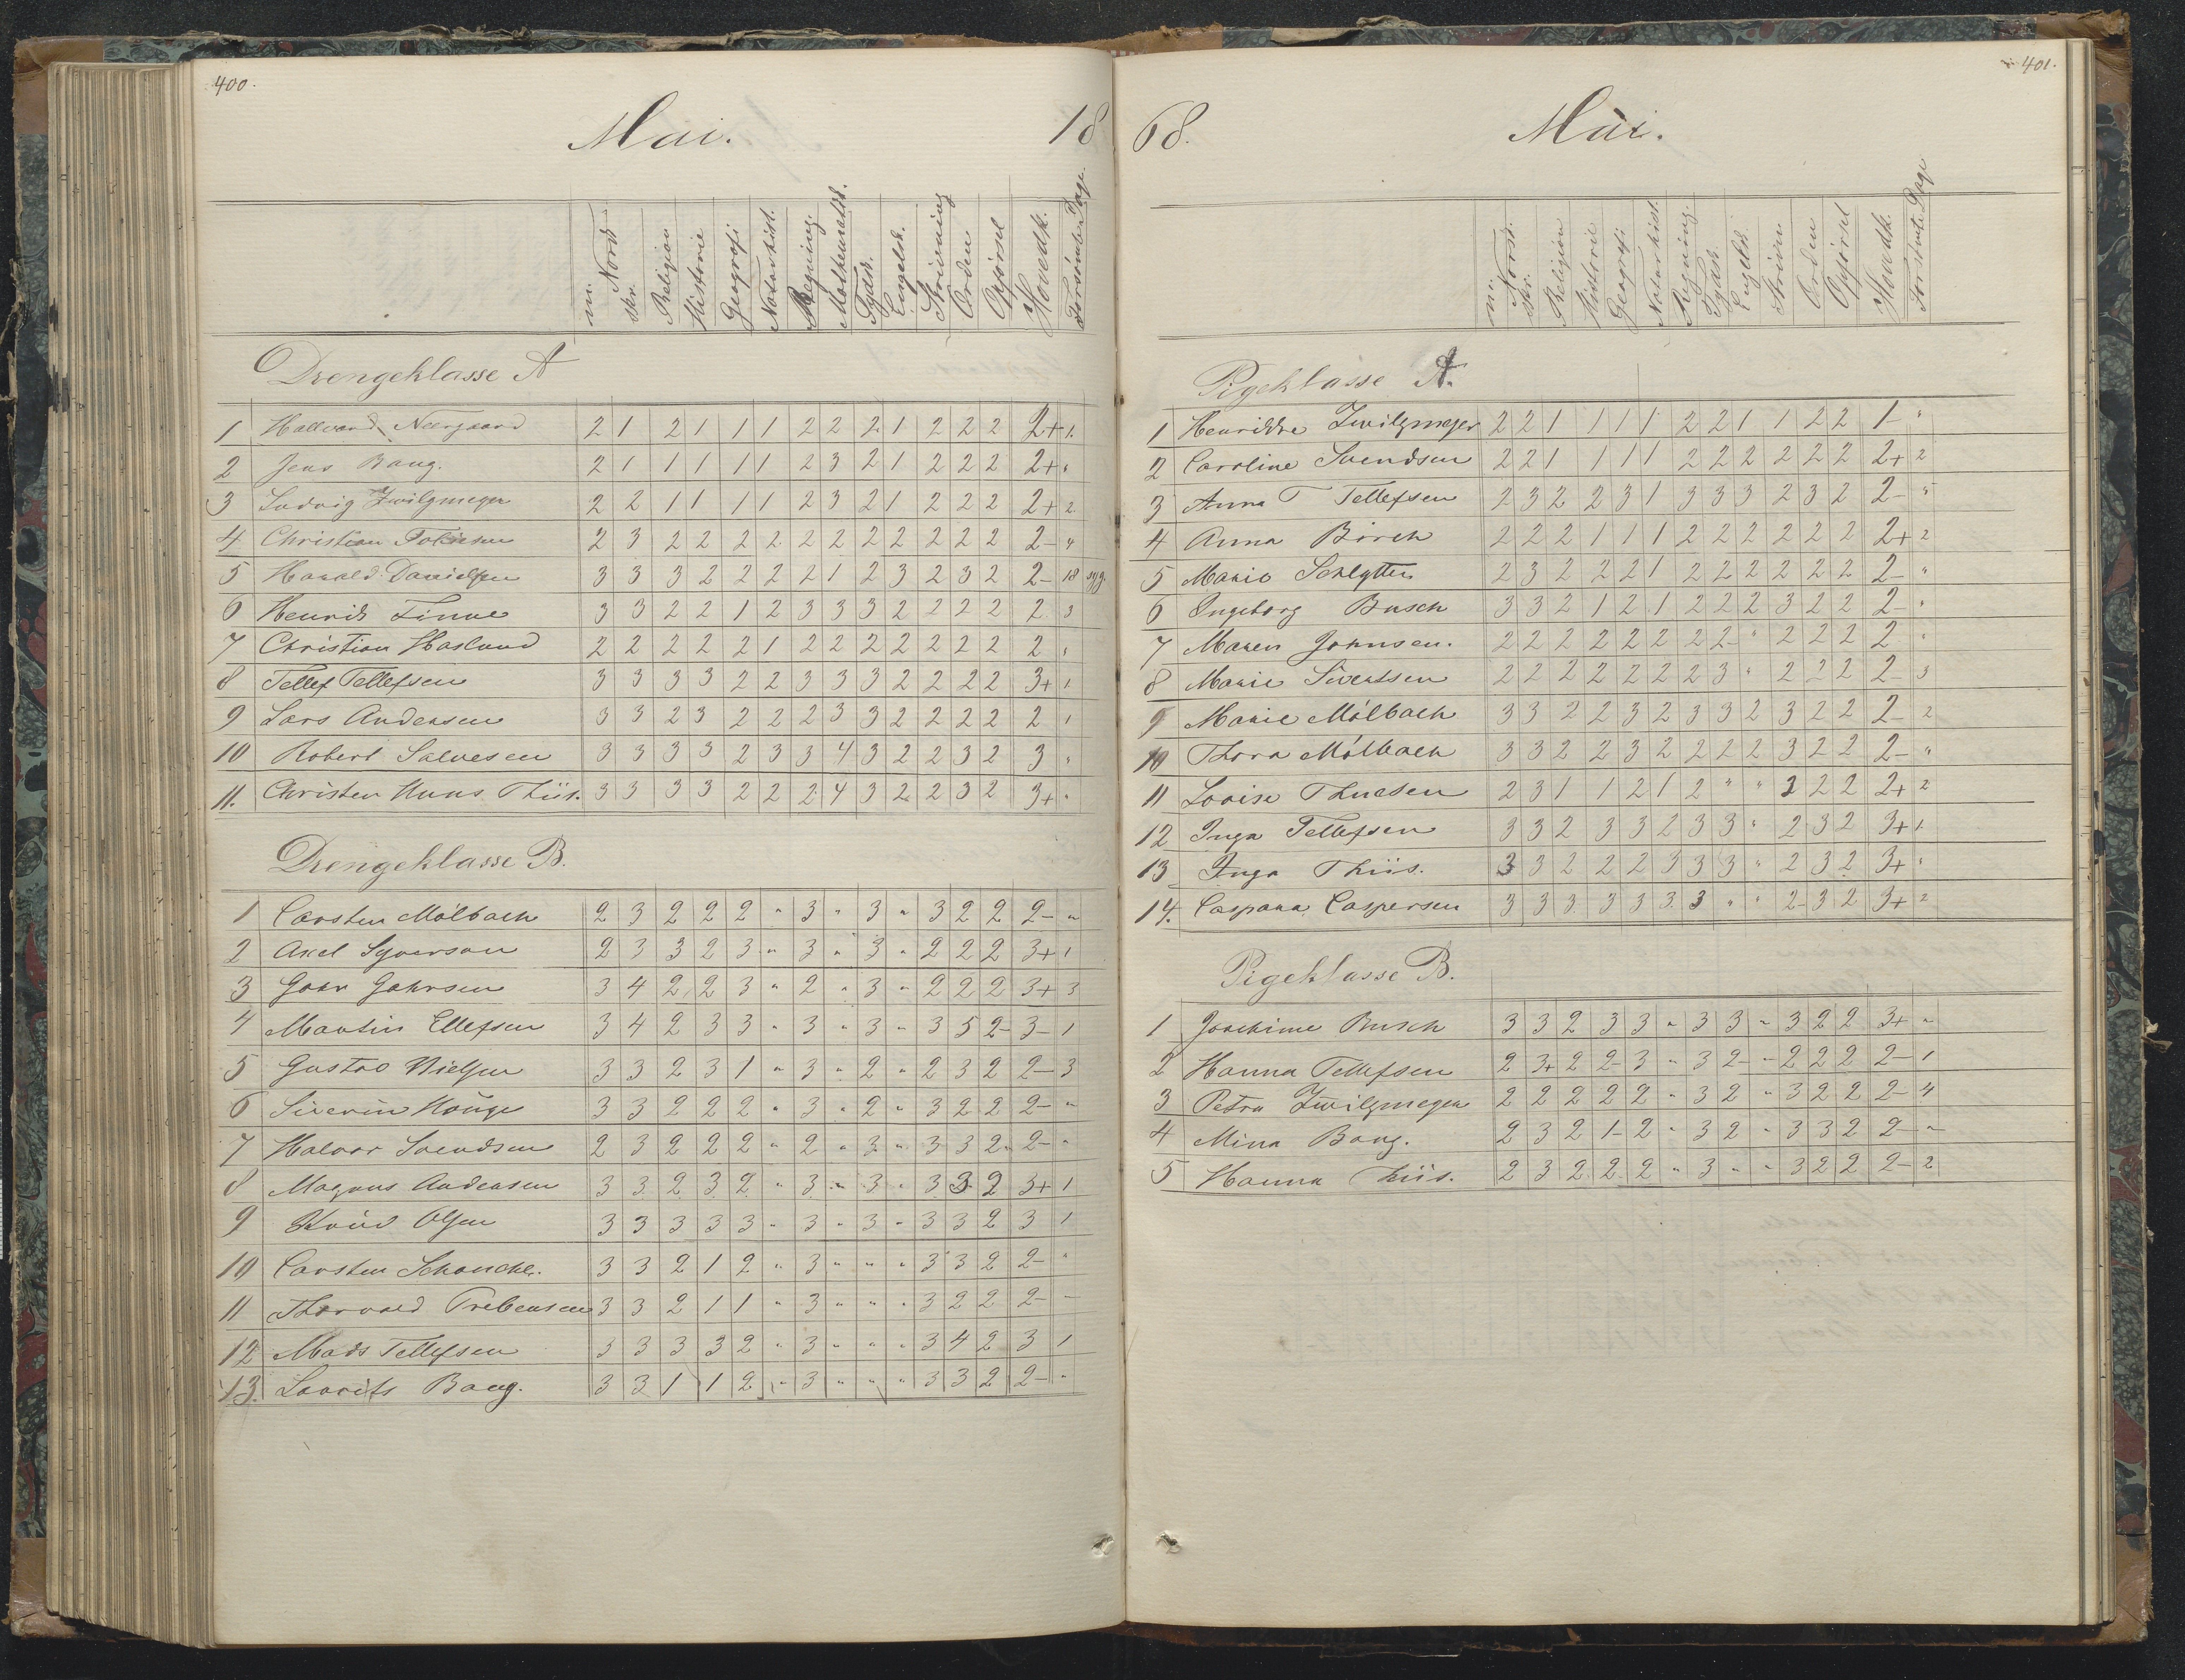 400.
Mai. 18
m. Norsk skr. Religion Historie Geografi Naturhist. Regning. Mathematik. Tydsk. Engelsk. Skrivning Orden Opførsel Hovedk. Forsømte Dage.
Drengeklasse A
1 Hallvard Neergaard 2 1 2 1 1 1 2 2 2 1 2 2 2 2+ 1.
2 Jens Bang. 2 1 1 1 1 1 2 3 2 1 2 2 2 2+ "
3 Ludvig Zwilgmeyer 2 2 1 1 1 1 2 3 2 1 2 2 2 2+ 2
4 Christian Tobiesen 2 3 2 2 2 2 2 2 2 2 2 2 2 2- 4
5 Harald Danielsen 3 3 3 2 2 2 2 1 2 3 2 3 2 2- 18 syg.
6 Henrik Finne 3 3 2 2 1 2 3 3 3 2 2 2 2 2 3
7 Christian Haslund 2 2 2 2 2 1 2 2 2 2 2 2 2 2 "
8 Tellef Tellefsen 3 3 3 3 2 2 3 3 3 2 2 2 2 3+ 1
9 Lars Andersen 3 3 2 3 2 2 2 3 3 2 2 2 2 2 1
10 Robert Salvesen 3 3 3 3 2 3 3 4 3 2 2 3 2 3 "
11. Christen Huus Thiis. 3 3 3 3 2 2 2 4 3 2 2 3 2 3+ "
Drengeklasse B.
1 Carsten Mølbach 2 3 2 2 2 " 3 " 3 " 3 2 2 2- "
2 Axel Syverson 2 3 3 2 3 " 3 " 3 " 2 2 2 3+ 1
3 John Johnsen 3 4 2 2 3 " 2 " 3 " 2 2 2 3+ 3
4 Martin Ellefsen 3 4 2 3 3 " 3 " 3 " 3 5 2- 3- 1
5 Gustav Nielsen 3 3 2 3 1 " 3 " 2 " 2 3 2 2- 3
6 Siverin Houge 3 3 2 2 2 " 3 " 2 " 3 2 2 2- "
7 Halvor Svendsen 2 3 2 2 2 " 2 " 3 " 3 3 2 2- "
8 Magnus Andersen 3 3 2 3 2 " 3 " 3 " 3 3 2 3+ 1
9 Knud Olsen 3 3 3 3 3 " 3 " 3 " 3 3 2 3 1
10 Carsten Schanche. 3 3 2 1 2 " 3 " " " 3 3 2 2- "
11 Thorvald Trebensen 3 3 2 1 1 " 3 " " " 3 2 2 2- "
12 Mads Tellefsen 3 3 3 3 2 " 3 " " " 3 4 2 3 1
13. Laurits Bang. 3 3 1 1 2 " 3 " " " 3 3 2 2- "
401.
68. Mai.
m. Norsk. skr. Religion Historie Geografi Naturhist. Regning. Tydsk Engelsk Skrivn Orden Opførsel Hovedk. Forsømte Dage
Pigeklasse A.
1 Henrikke Zwilgmeyer 2 2 1 1 1 1 2 2 1 1 2 2 1- "
2 Caroline Svendsen 2 2 1 1 1 1 2 2 2 2 2 2 2+ 2
3 Anna T Tellefsen 2 3 2 2 3 1 3 3 3 2 3 2 2- "
4 Anna Birch 2 2 2 1 1 1 2 2 2 2 2 2 2+ 2
5 Marie Schlytter 2 3 2 2 2 1 2 2 2 2 2 2 2- "
6 Ingeborg Busch 3 3 2 1 2 1 2 2 2 3 2 2 2- "
7 Maren Johnsen. 2 2 2 2 2 2 2 2- " 2 2 2 2 "
8 Marie Sivertsen 2 2 2 2 2 2 2 3 " 2 2 2 2- 3
9 Marie Mølbach 3 3 2 2 3 2 3 3 2 3 2 2 2- 2
10 Thora Mølbach 3 3 2 2 3 2 2 2 2 3 2 2 2- "
11 Lovise Thuesen 2 3 1 1 2 1 2 " " 2 2 2 2+ 2
12 Inga Tellefsen 3 3 2 3 3 2 3 3 " 2 3 2 3+ 1
13 Inga Thiis. 3 3 2 2 2 3 3 3 " 2 3 2 3+ "
14. Caspara Caspersen 3 3 3 3 3 3 3 " " 2- 3 2 3+ 2
Pigeklasse B.
1 Joachime Busch 3 3 2 3 3 " 3 3 " 3 2 2 3+ "
2 Hanna Tellefsen 2 3+ 2 2- 3 " 3 2- " 2 2 2 2- 1
3 Petra Zwilgmeyer 2 2 2 2 2 " 3 2 " 3 2 2 2- 4
4 Mina Bang. 2 3 2 1- 2 " 3 2 " 3 3 2 2- "
5 Hanna Thiis. 2 3 2 2 2 " 3 " " 3 2 2 2- 2